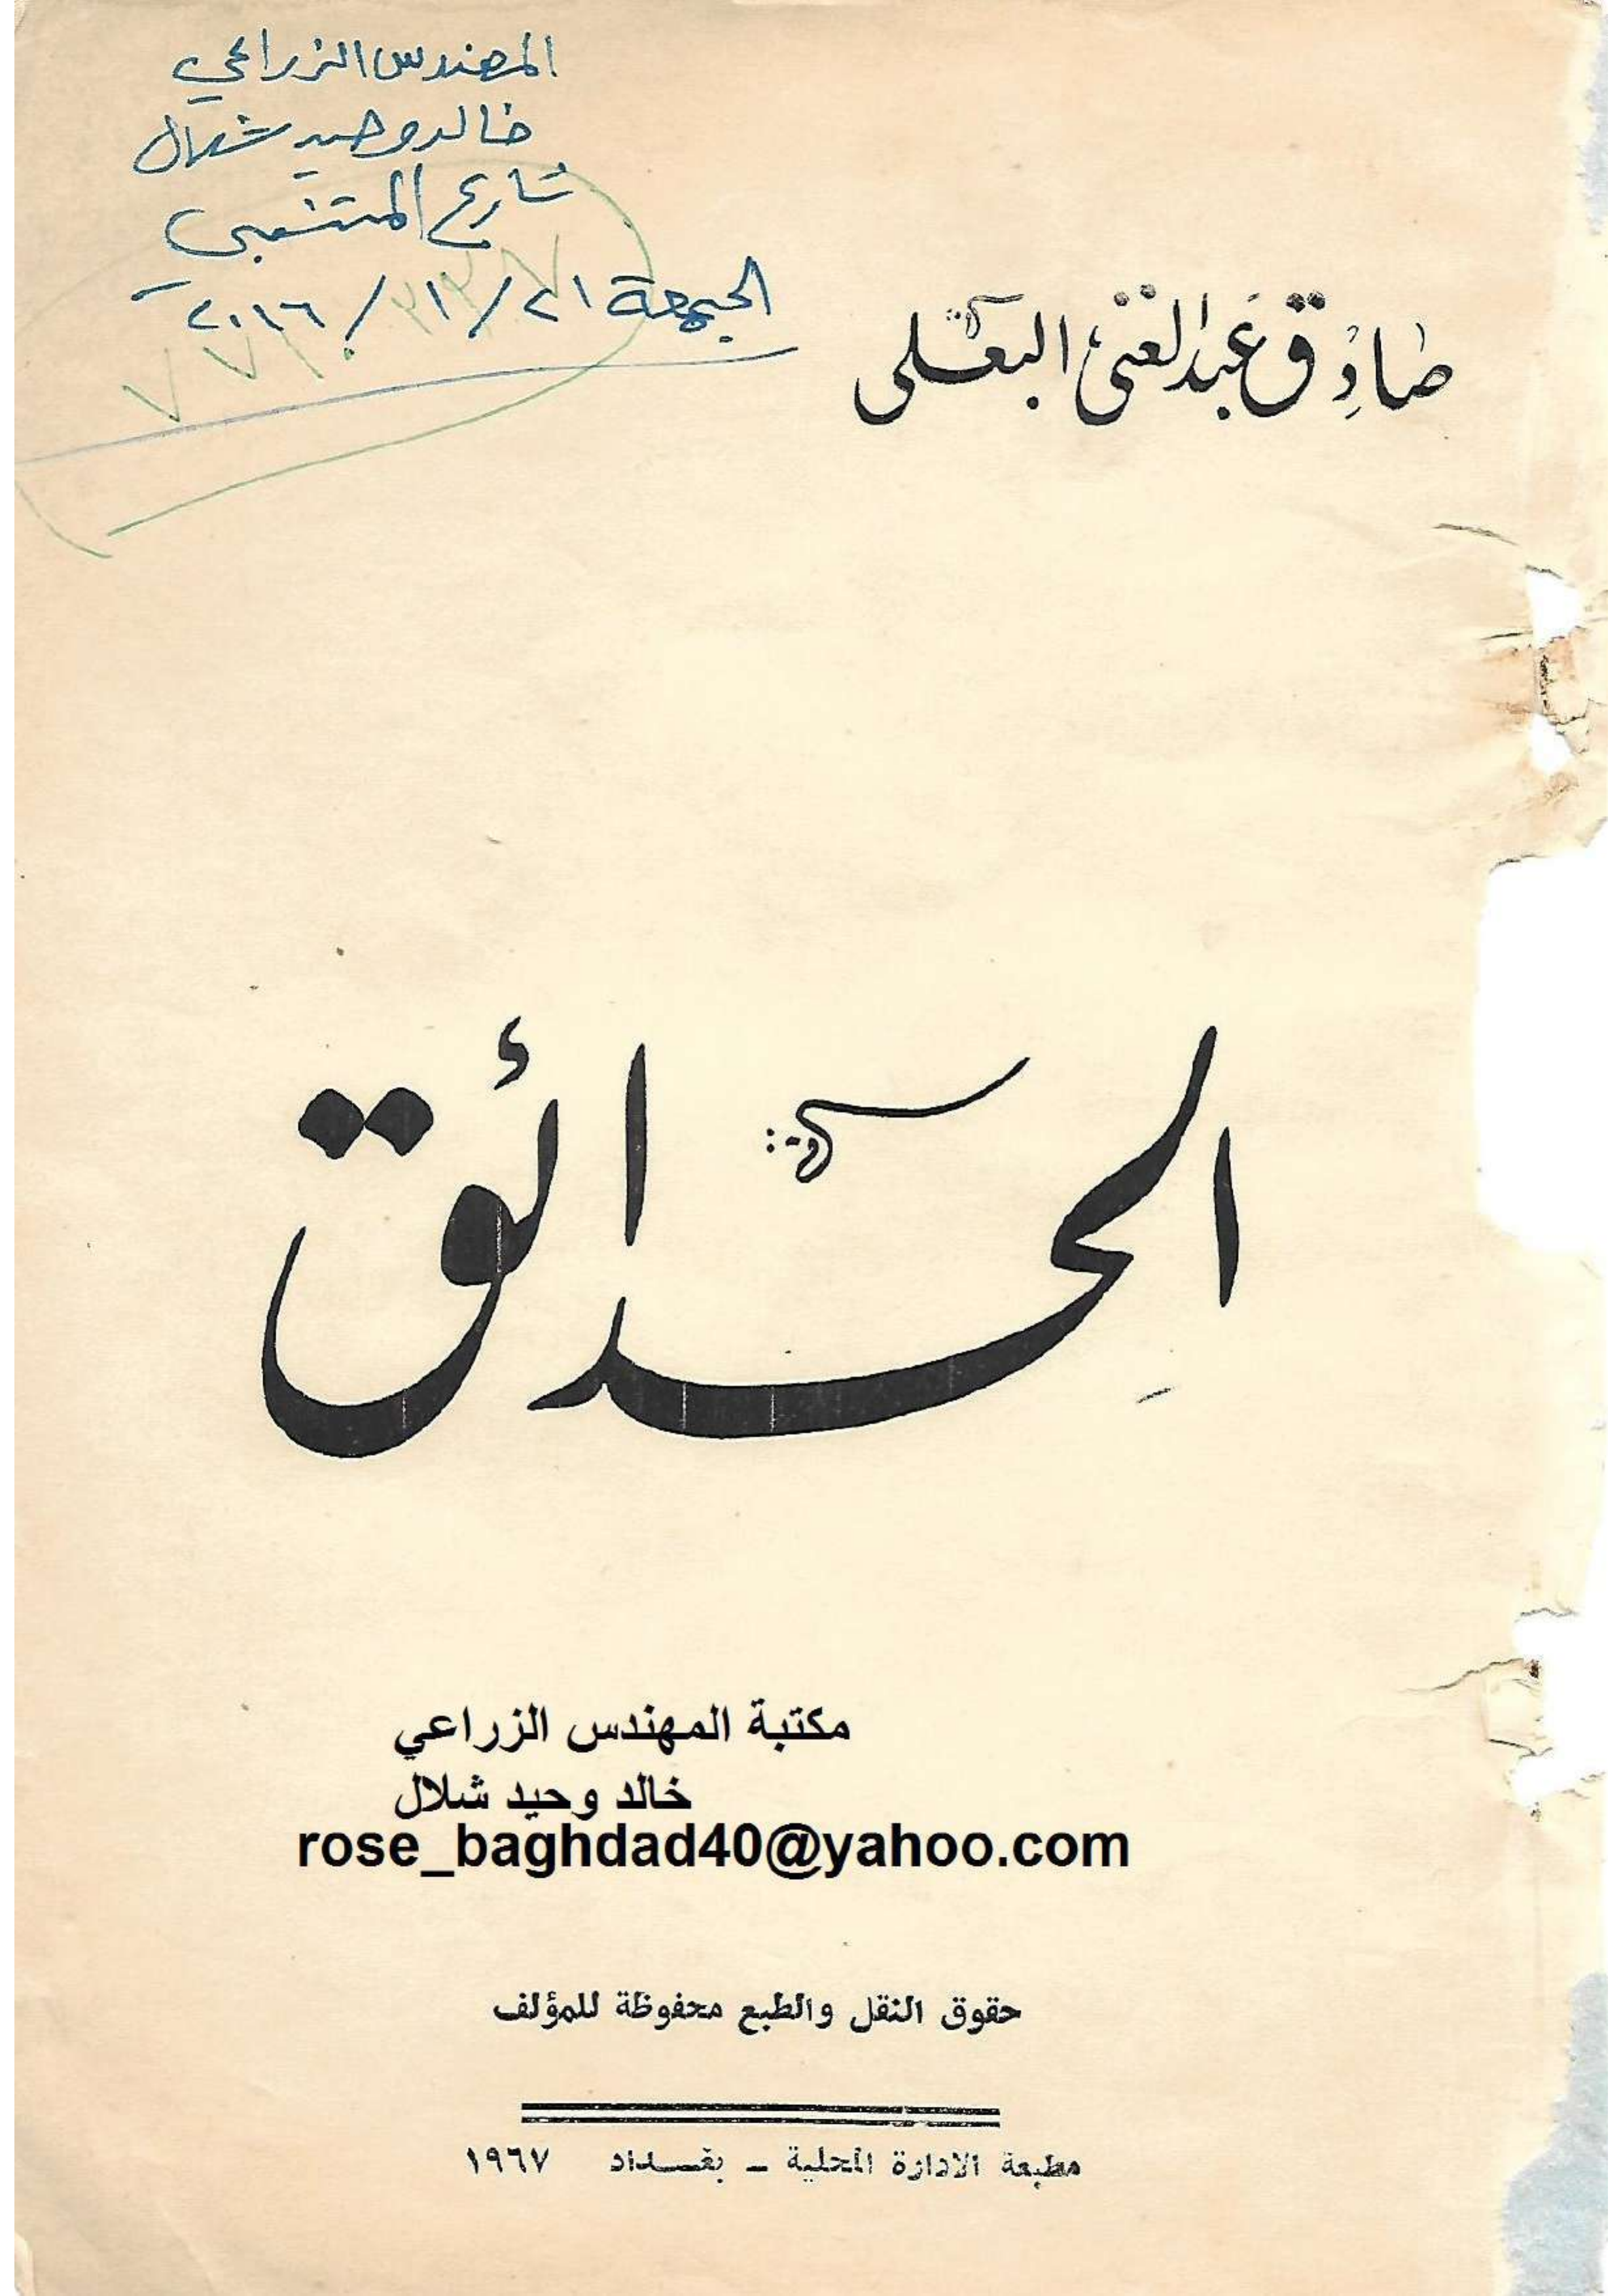 المهندس الزراعي
خالد وحيد شلال
شارع المتنبي
الجمعة ٢١ / ١ / ٢٠١٦
صادق عبد الغني البعلي
الحدائق
مكتبة المهندس الزراعي
خالد وحيد شلال
rose_baghdad40@yahoo.com
حقوق النقل والطبع محفوظة للمؤلف
مطبعة الادارة المحلية ـ بغـــداد ١٩٦٧